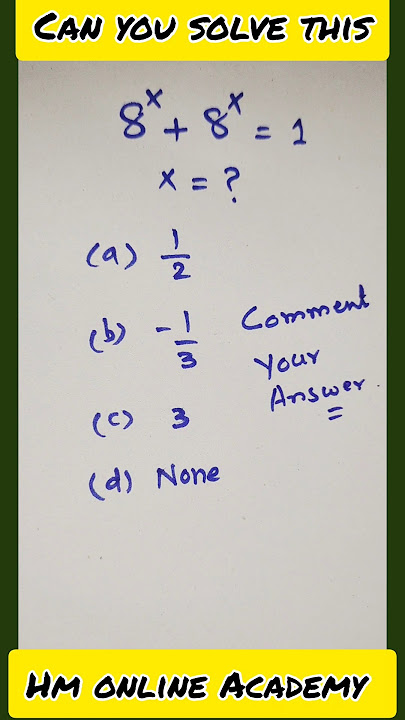 CAN YOU SOLVE THIS
8^x + 8^x = 1
x = ?
(a) 1/2
(b) -1/3
(c) 3
(d) None
Comment
your
Answer.
HM ONLINE ACADEMY